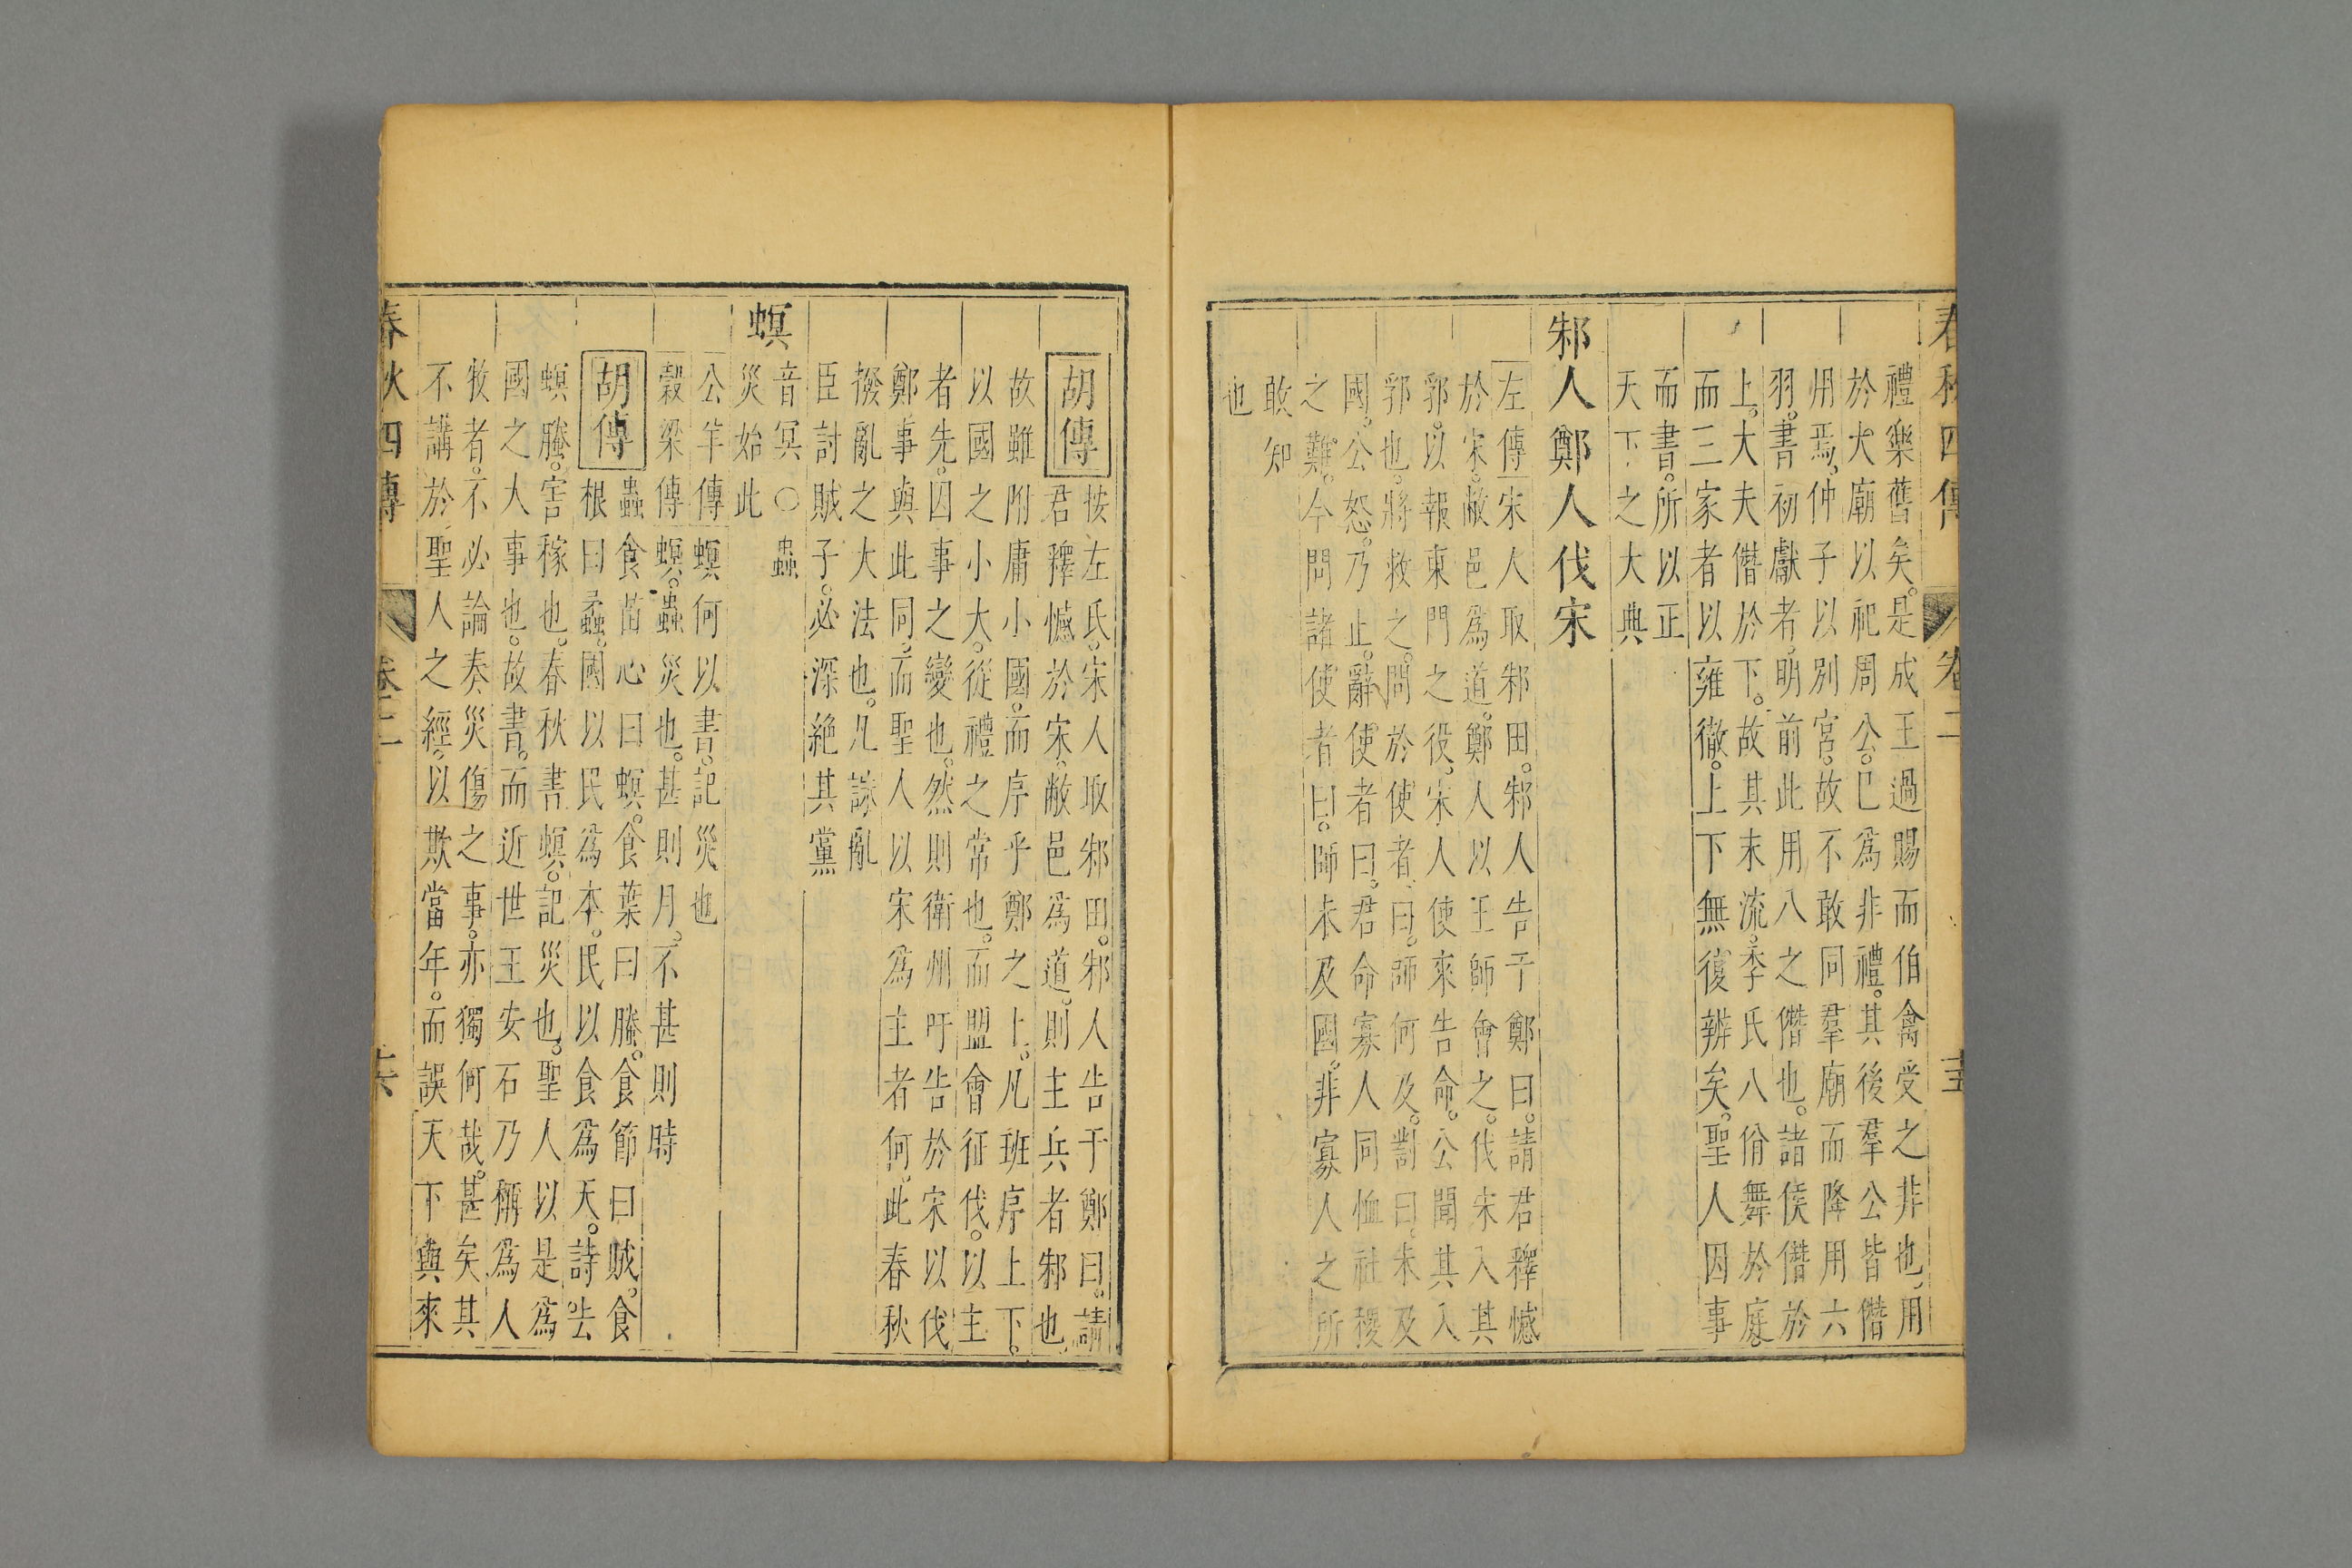 春秋四傳 卷二 十五
禮樂舊矣。是成王過賜而伯禽受之非也。用
於大廟以祀周公。已爲非禮。其後羣公皆僭
用焉。仲子以別宮。故不敢同羣廟而降用六
羽。書初獻者。明前此用八之僭也。諸侯僭於
上。大夫僭於下。故其末流。季氏八佾舞於庭。
而三家者以雍徹。上下無復辨矣。聖人因事
而書。所以正
天下之大典
邾人鄭人伐宋
左傳宋人取邾田。邾人告于鄭曰。請君釋憾
於宋。敝邑爲道。鄭人以王師會之。伐宋入其
郛。以報東門之役。宋人使來告命。公聞其入
郛也。將救之。問於使者。曰。師何及。對曰。未及
國。公怒。乃止。辭使者曰。君命寡人同恤社稷
之難。今問諸使者曰。師未及國。非寡人之所
敢知
也
胡傳
按左氏。宋人取邾田。邾人告于鄭曰。請
君釋憾於宋。敝邑爲道。則主兵者邾也。
故雖附庸小國。而序乎鄭之上。凡班序上下。
以國之小大。從禮之常也。而盟會征伐。以主
者先。因事之變也。然則衛州吁告於宋以伐
鄭。事與此同。而聖人以宋爲主者何。此春秋
撥亂之大法也。凡誅亂
臣討賊子。必深絶其黨
螟
音冥〇蟲
災始此
公羊傳螟何以書。記災也
穀梁傳螟。蟲災也。甚則月。不甚則時
胡傳
蟲食苗心曰螟。食葉曰螣。食節曰賊。食
根曰蟊。國以民爲本。民以食爲天。詩去
螟螣。害稼也。春秋書螟。記災也。聖人以是爲
國之大事也。故書。而近世王安石乃稱爲人
牧者。不必論奏災傷之事。亦獨何哉。甚矣其
不講於聖人之經。以欺當年。而誤天下與來
春秋四傳 卷二 十六